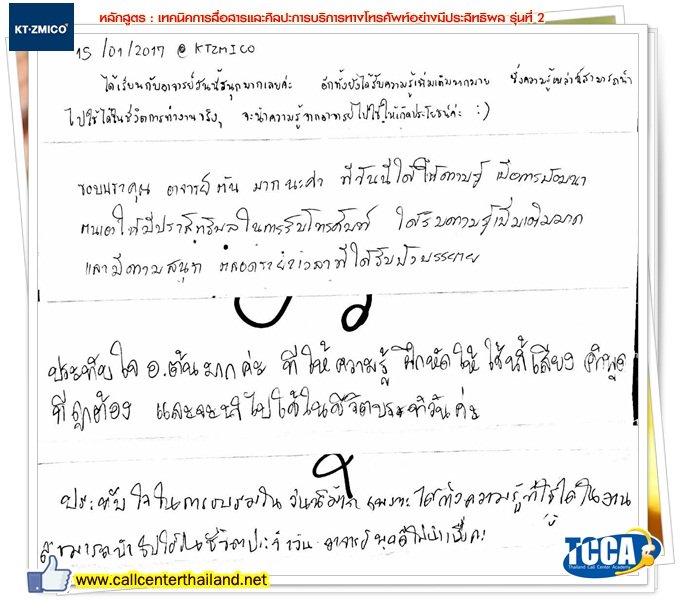 หลักสูตร : เทคนิคการสื่อสารและศิลปะการบริการทางโทรศัพท์อย่างมีประสิทธิผล รุ่นที่ 2
KT·ZMICO
15 /01/2017 @ KTZMICO
ได้เรียนกับอาจารย์วันนี้สนุกมากเลยค่ะ อีกทั้งยังได้รับความรู้เพิ่มเติมมากมาย ซึ่งความรู้เหล่านี้สามารถนำ
ไปใช้ได้ในชีวิตการทำงานจริงๆ จะนำความรู้จากอาจารย์ไปใช้ให้เกิดประโยชน์ค่ะ :)
ขอบพระคุณ อาจารย์ต้น มากนะคะ ที่วันนี้ได้ให้ความรู้ เพื่อการพัฒนา
ตนเองให้มีประสิทธิผลในการรับโทรศัพท์ ได้รับความรู้เพิ่มเติมมาก
และมีความสนุก ตลอดระยะเวลาที่ได้รับฟังบรรยาย
ประทับใจ อ.ต้นมากค่ะ ที่ให้ความรู้ ฝึกหัดให้ใช้น้ำเสียง คำพูด
ที่ถูกต้อง และจะนำไปใช้ในชีวิตประจำวันค่ะ
ประทับใจในการอบรมในวันนี้มาก เพราะได้ทั้งความรู้ที่ใช้ได้ในงาน
สามารถนำไปใช้ในชีวิตประจำวัน อาจารย์พูดดีไม่น่าเบื่อค่ะ
TCCA
Thailand Call Center Academy
www.callcenterthailand.net